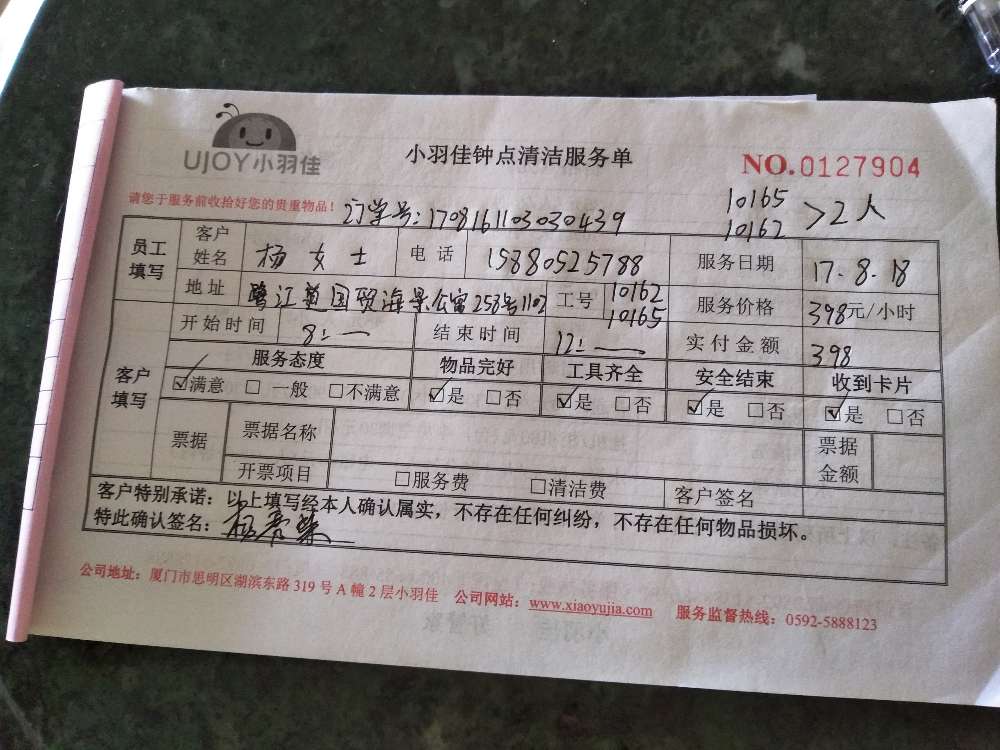 UJOY小羽佳
小羽佳钟点清洁服务单
NO.0127904
请您于服务前收拾好您的贵重物品！
订学号:1708161103030439
10165
10162 >2人
员工填写 客户姓名 杨女士 电话 15880525788 服务日期 17.8.18
地址 鹭江道国贸海景公寓258号1102 工号 10162 10165 服务价格 398元/小时
开始时间 8:— 结束时间 12:— 实付金额 398
客户填写 服务态度 物品完好 工具齐全 安全结束 收到卡片
☑满意 □一般 □不满意 ☑是 □否 ☑是 □否 ☑是 □否 ☑是 □否
票据 票据名称 票据金额
开票项目 □服务费 □清洁费 客户签名
客户特别承诺：以上填写经本人确认属实，不存在任何纠纷，不存在任何物品损坏。
特此确认签名：
公司地址：厦门市思明区湖滨东路319号A幢2层小羽佳 公司网站：www.xiaoyujia.com 服务监督热线：0592-5888123